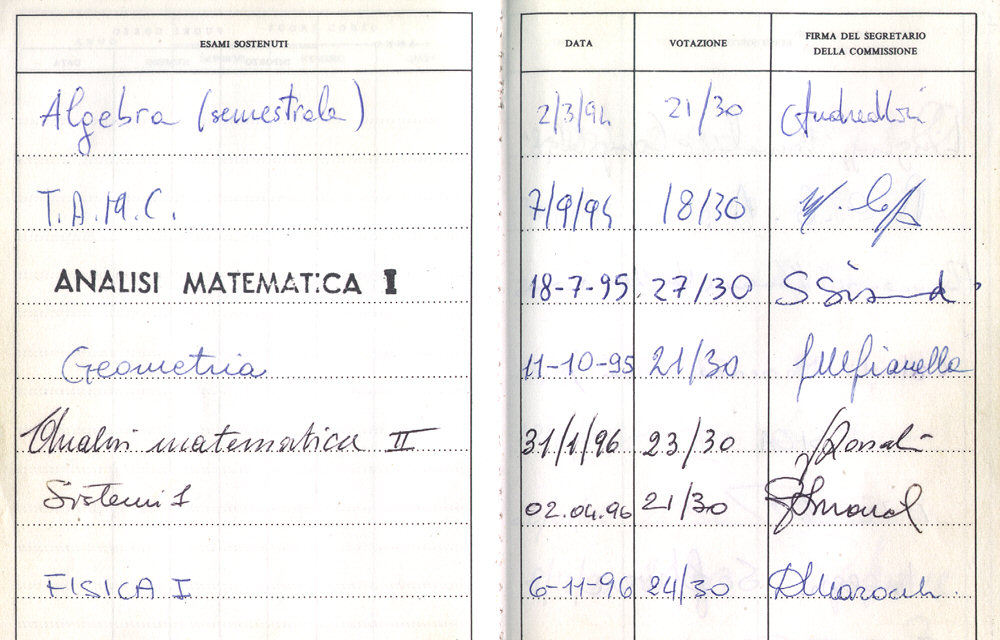 ESAMI SOSTENUTI DATA VOTAZIONE FIRMA DEL SEGRETARIO
DELLA COMMISSIONE
Algebra (semestrale) 2/3/94 21/30
T.A.M.C. 7/9/94 18/30
ANALISI MATEMATICA I 18-7-95 27/30
Geometria 11-10-95 21/30
Analisi matematica II 31/1/96 23/30
Sistemi 1 02.04.96 21/30
FISICA I 6-11-96 24/30